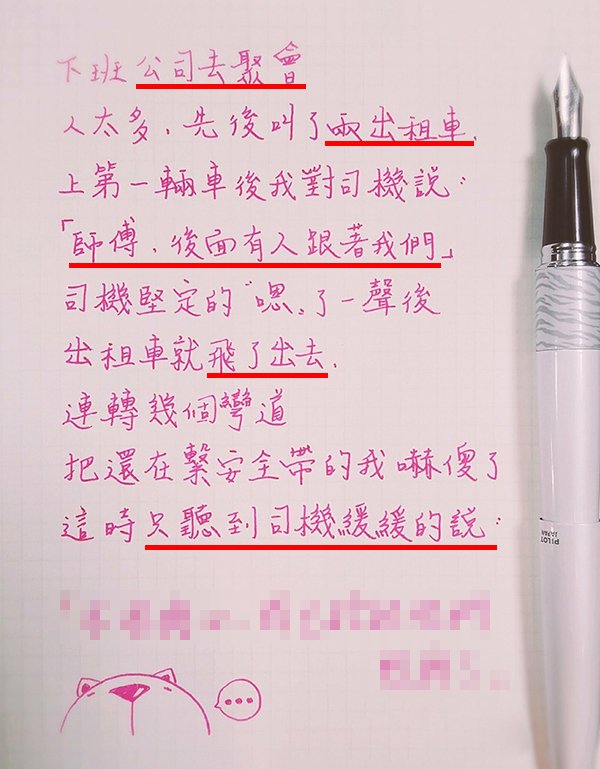 下班公司去聚會
人太多，先後叫了兩出租車，
上第一輛車後我對司機說：
「師傅，後面有人跟著我們」
司機堅定的“嗯”了一聲後
出租車就飛了出去，
連轉幾個彎道
把還在繫安全帶的我嚇傻了
這時只聽到司機緩緩的說：
...
PILOT
JAPAN